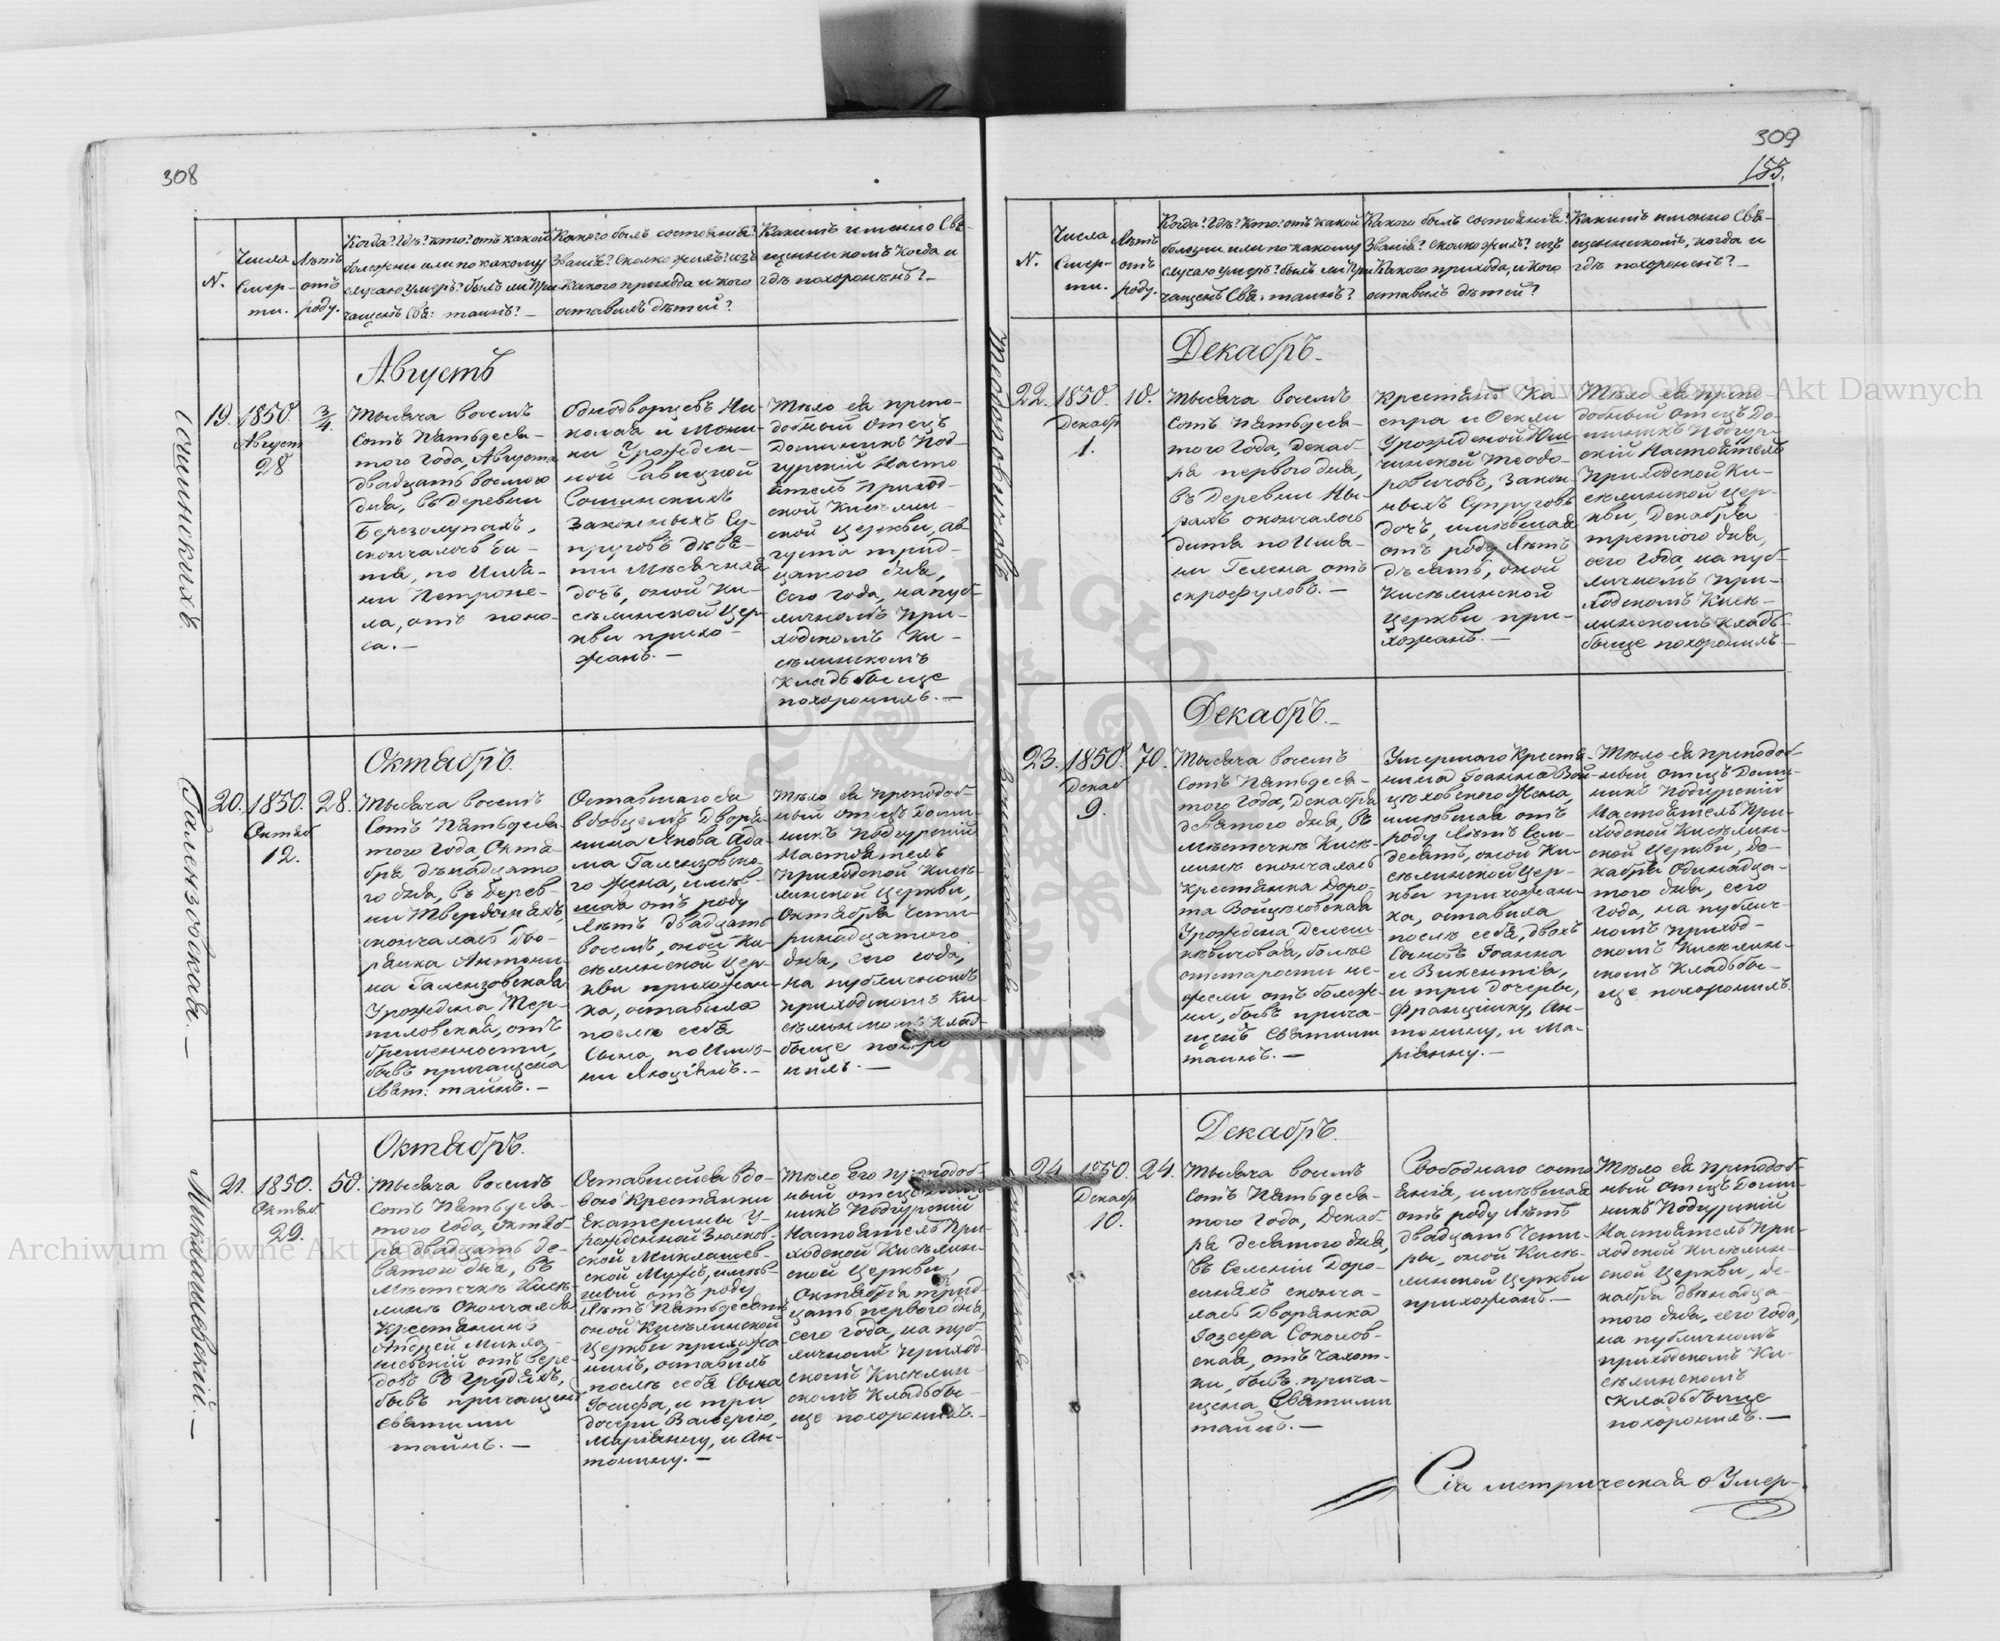 308
N.
Числа
Смер-
ти.
Лѣтъ
отъ
роду.
Когда? Гдѣ? кто? отъ какой
болѣзни или по какому
случаю умеръ? былъ ли При-
чащенъ Свя: таинъ? —
Какого былъ состоянія?
Званія? Сколько жилъ? изъ
какого прихода и кого
оставилъ дѣтей?
Какимъ именно Свя-
щенникомъ когда и
гдѣ похороненъ? —
Сошинскихъ
Августъ
19.
1850.
Август
28
3/4.
Тысяча восемь
сотъ Пятьдеся-
того года, Августа
двадцать восмого
дня, въ деревни
Березолупахъ,
скончалась ди-
тя, по Име-
ни Петроне-
ла, отъ поно-
са. —
Однодворцевъ Ни-
колая и Мони-
ки Урожден-
ной Савицкой
Сошинскихъ
Законныхъ Су-
пруговъ Девя-
ти Мѣсячная
дочь, оной Ки-
сѣлинской Цер-
кви прихо-
жанъ. —
Тѣло ея препо-
добный Отецъ
Доминикъ Под-
гурскій Насто-
ятель Приход-
ской Кисѣлин-
ской Церкви, ав-
густа трид-
цатого дня,
Сего года, на пуб-
личномъ При-
ходскомъ Ки-
сѣлинскомъ
Кладьбыще
похоронилъ. —
Галензовская. —
Октябрь.
20.
1850.
Октяб
12.
28.
Тысяча восемь
Сотъ Пятьдеся-
того Года, Октя-
бря двѣнадцато
го дня, въ Дерев-
ни Твердыняхъ,
скончалась Дво-
рянка Антони-
на Галензовская
Урождена Тер-
пиловская, отъ
бременности,
бывъ причащена
Свят: таинъ. —
Оставшагося
вдовцемъ Дворя-
нина Якова Ада-
ма Галензовско-
го жена, имѣв-
шая отъ роду
лѣтъ двадцать
восемь, оной Ки-
сѣлинской Цер-
кви прихожан-
ка, оставила
послѣ себя
Сына, по Име-
ни Люціянъ. —
Тѣло ея преподоб-
ный отецъ Доми-
никъ Подгурскій
Настоятель
Приходской Кисѣ-
линской Церкви,
Октября Четы-
ринадцатого
дня, сего года,
на публичномъ
приходскомъ Ки-
сѣлинскомъ Клад-
быще похоро
нилъ. —
Миклашевскій. —
Октябрь.
21.
1850.
Октяб
29.
50.
Тысяча восемь
Сотъ Пятьдеся-
того года, Октяб-
ря двадцать де-
вятого дня, въ
Мѣстечкѣ Кисѣ-
линѣ Скончался
Крестянинъ
Андрей Микла-
шевскій отъ вере-
довъ въ грудяхъ,
бывъ причащенъ
Святыми
таинъ. —
Оставшейся вдо-
вою Крестянки
Екатерины У-
рожденной Зюлков-
ской Миклашев-
ской Мужъ, имѣв-
шый отъ роду
лѣтъ Пятьдесятъ
оной Кисѣлинской
Церкви прихожа-
нинъ, оставилъ
послѣ себя Сына
Іосифа, и три
дочери Валерію,
Маріянну, и Ан-
тонину. —
Тѣло его преподоб-
ный отецъ Доми-
никъ Подгурскій
Настоятель При-
ходской Кисѣлин-
ской Церкви,
Октября трид-
цать первого дня,
сего года, на пуб-
личномъ Приход-
скомъ Кисѣлин-
скомъ Кладьбы-
ще похоронилъ. —
309
155.
N.
Числа
Смер-
ти.
Лѣтъ
отъ
роду.
Когда? Гдѣ? Кто? отъ какой
болѣзни или по какому
случаю умеръ? былъ ли При
чащенъ Свя: таинъ?
Какого былъ состоянія?
Званія? Сколко жилъ? изъ
Какого прихода, и кого
оставилъ дѣтей?
Какимъ именно Свя-
щенникомъ, когда и
гдѣ похороненъ? —
Теодоровичовъ
Декабрь. —
22.
1850.
Декабр
1.
10.
Тысяча восемь
Сотъ Пятьдеся-
того Года, Декаб-
ря первого дня,
въ Деревни Ны-
рахъ окончалась
дитя по Име-
ни Гелена отъ
скрофуловъ. —
Крестянъ Ка-
спра и Феклы
Урожденой Юш-
чинской Теодо-
ровичовъ, Закон-
ныхъ Супруговъ
дочь, имѣвшая
отъ роду лѣтъ
дѣсять, оной
Кисѣлинской
Церкви при-
хожанъ. —
Тѣло ея препо-
добный отецъ До-
миникъ Подгур-
скій Настоятель
Приходской Ки-
сѣлинской Цер-
кви, Декабря
третого дня,
сего Года, на пуб-
личномъ При-
ходскомъ Кисѣ-
линскомъ кладь-
быще похоронилъ —
Декабрь. —
23.
1850.
Декаб
9.
70.
Тысяча восемь
Сотъ Пятьдеся-
того Года, Декабря
девятого дня, въ
Мѣстечкѣ Кисѣ-
линѣ скончалась
Крестянка Доро-
та Войцѣховская
Урождена Демен-
кѣвичовая, более
отъ старости не-
жели отъ болѣз-
ни, бывъ прича-
щенъ Святыми
таинъ. —
Умершаго Крестя-
нина Іоанна Вой-
цѣховского Жена,
имѣвшая отъ
роду лѣтъ Сем-
десятъ, оной Ки-
сѣлинской Цер-
кви прихожан-
ка, оставила
послѣ себя, двохъ
Сыновъ Іоанна
и Викентія,
и три дочеры,
Францишку, Ан-
тонину, и Ма-
ріянну. —
Тѣло ея преподоб-
ный отецъ Доми-
никъ Подгурскій
Настоятель При-
ходской Кисѣлин-
ской Церкви, де-
кабря Одинадца-
того дня, сего
Года, на публич-
номъ приход-
скомъ Кисѣлин-
скомъ Кладьбы-
ще похоронилъ.
Декабрь.
24.
1850.
Декабр
10.
24.
Тысяча восемь
Сотъ Пятьдеся-
того Года, Декаб-
ря десятого дня,
въ Селеніи Доро-
синяхъ сконча-
лась Дворянка
Іозефа Соколов-
ская, отъ чахот-
ки, бывъ прича-
щена Святыми
таинъ. —
Свободнаго состо
янія, имѣвшая
отъ роду лѣтъ
двадцать Четы-
ры, оной Кисѣ-
линской Церкви
прихожанъ. —
Тѣло ея преподоб-
ный отецъ Доми-
никъ Подгурскій
Настоятель При-
ходской Кисѣлин-
ской Церкви, де-
кабря двѣнадца-
того дня, сего Года,
на публичномъ
приходскомъ Ки-
сѣлинскомъ
Кладьбыще
похоронилъ. —
Сія метрическая о Умер-
Archiwum Główne Akt Dawnych
Archiwum Główne Akt Dawnych